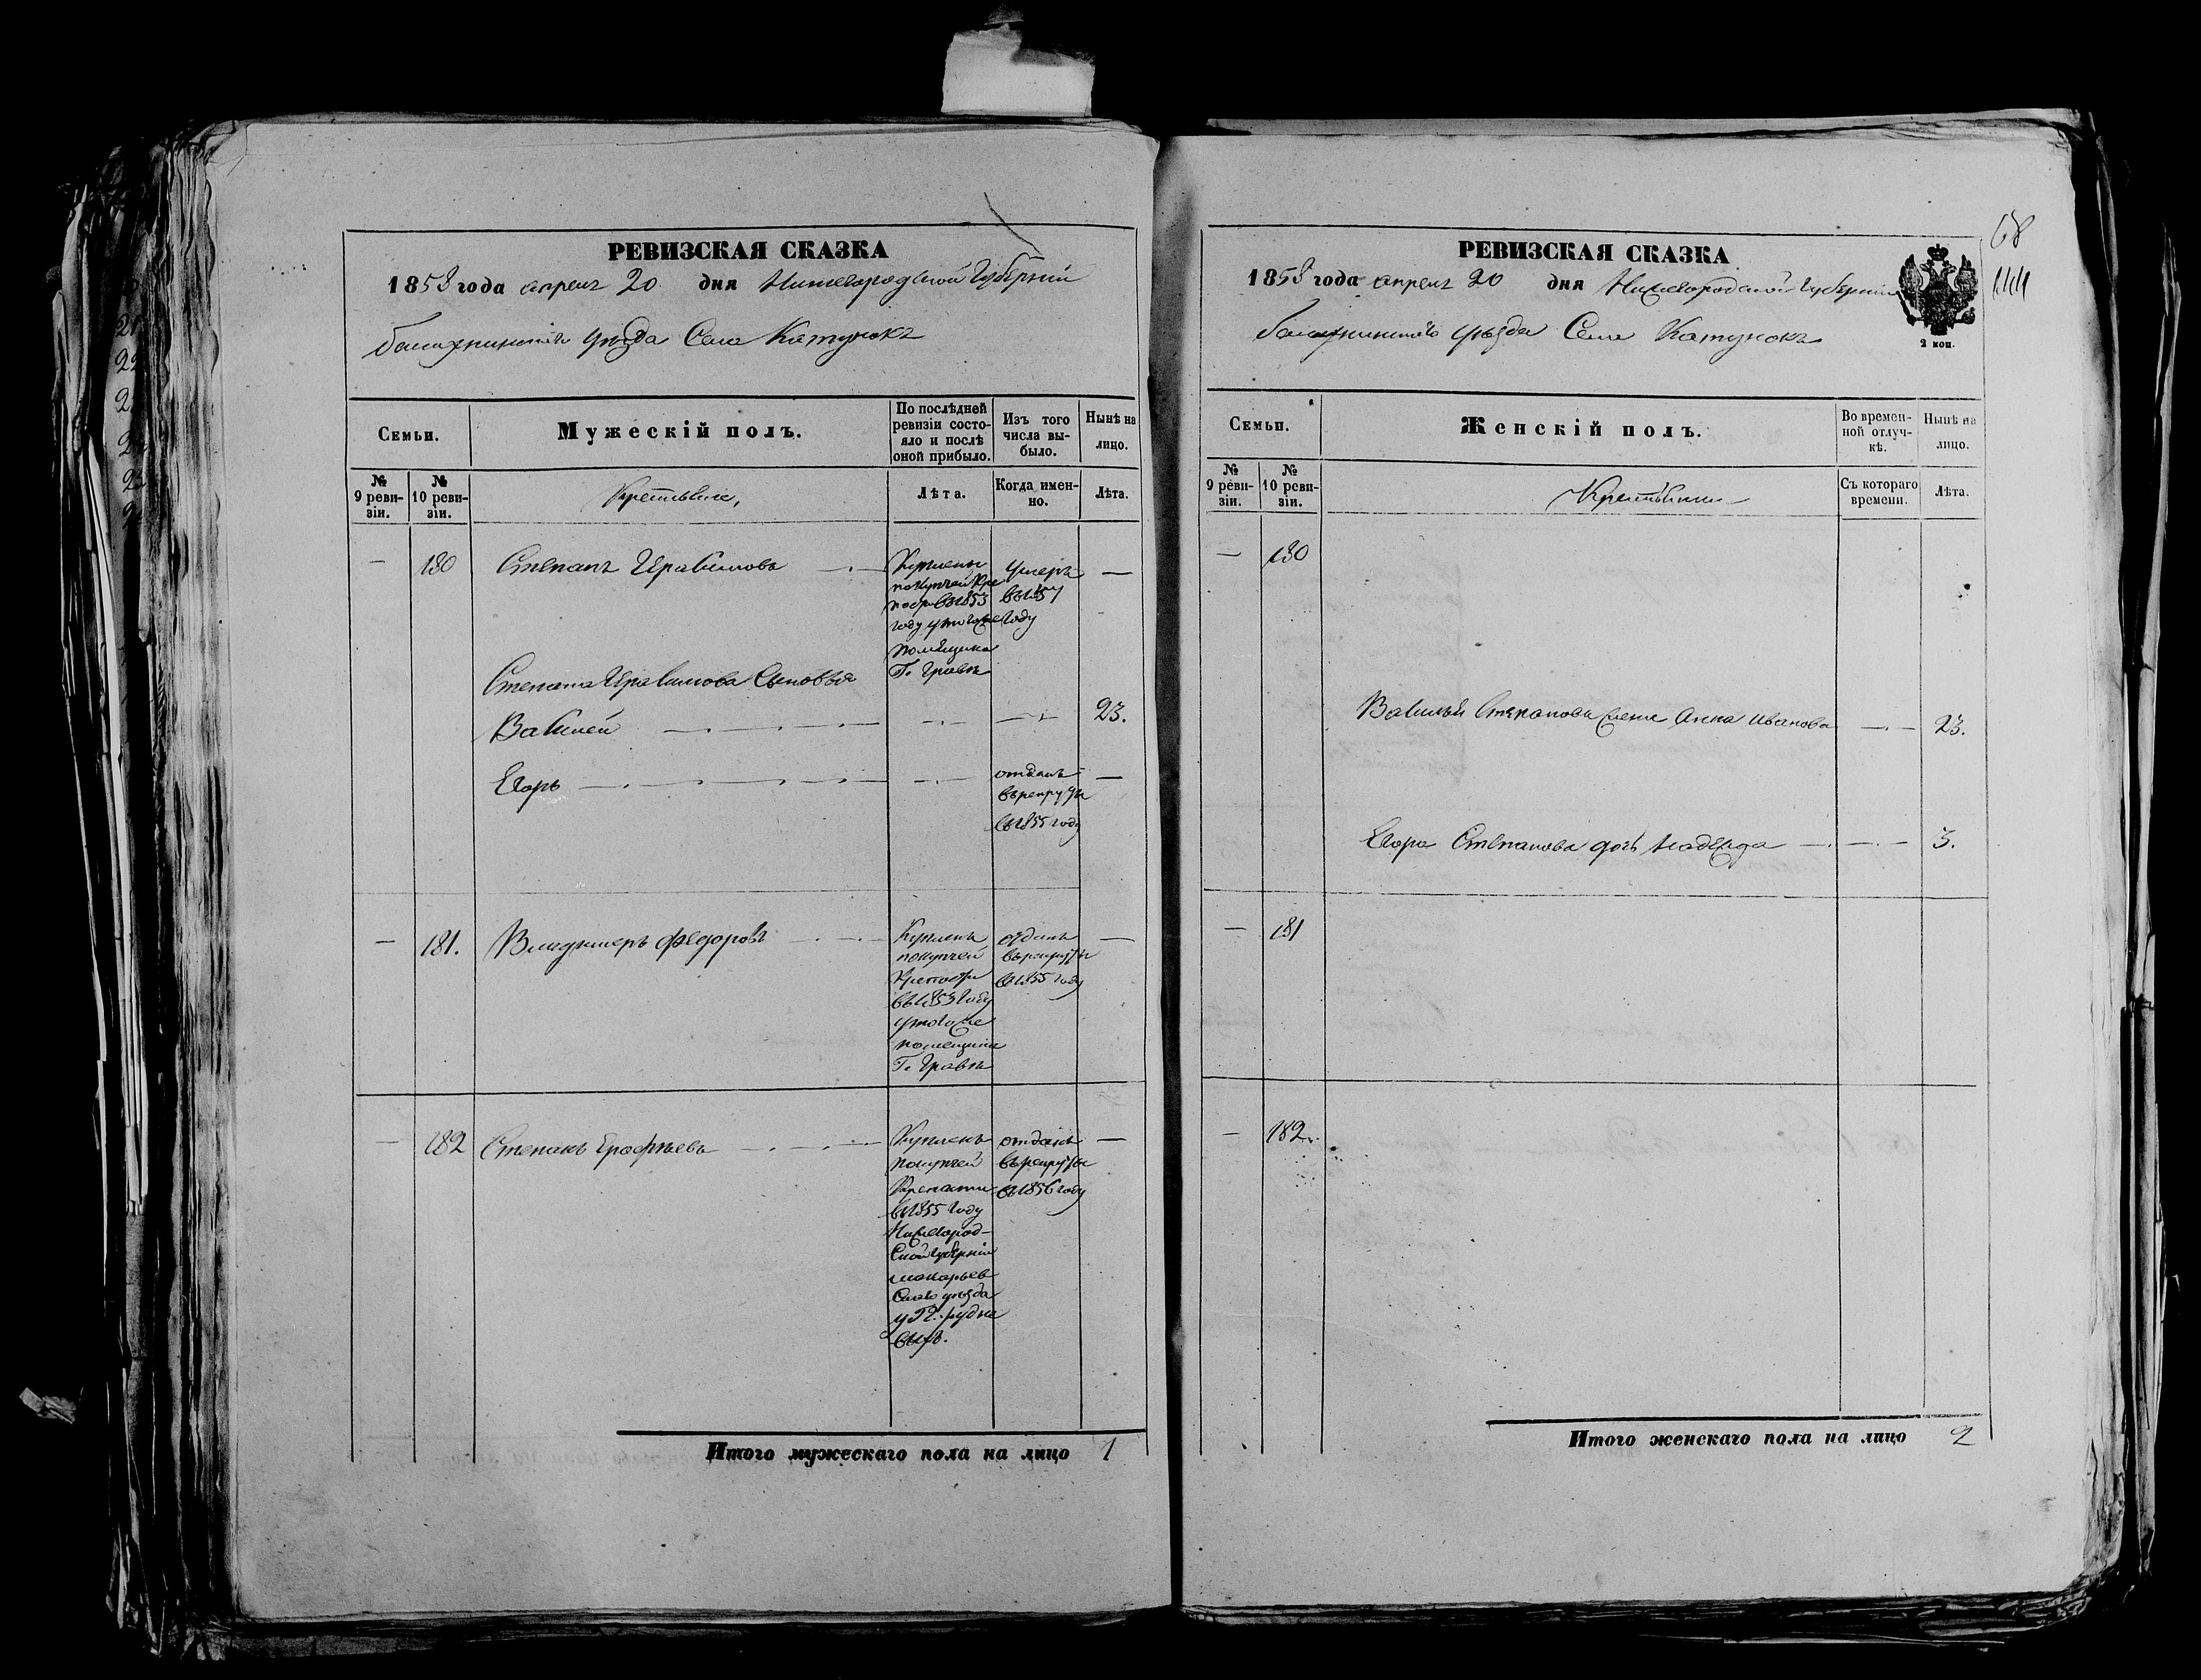 РЕВИЗСКАЯ СКАЗКА
1858 года апреля 20 дня Нижегородской Губерніи
Балахнинскаго уѣзда Села Катунокъ
Семьи.
Мужескій полъ.
По послѣдней ревизіи состояло и послѣ оной прибыло.
Изъ того числа выбыло.
Нынѣ на лицо.
№ 9 ревизіи.
№ 10 ревизіи.
Крестьяне,
Лѣта.
Когда именно.
Лѣта.
— 180 Степанъ
Купленъ
по купчей кре
пости въ 1853
году у того же
помѣщика
Г. Граве
умеръ
въ 1857
году
—
Степана Сыновья
Василей 23.
Егоръ
отданъ
въ рекруты
въ 1855 году
—
— 181. Владимеръ Федоровъ
Купленъ
по купчей
Крепости
въ 1853 году
у того же
помещика
Г. Граве
отданъ
въ рекруты
въ 1855 году
—
— 182 Степанъ Ерофѣевъ
Купленъ
по купчей
Крепости
въ 1855 году
Нижегород-
ской губерніи
макарьев
скаго уѣзда
отданъ
въ рекруты
въ 1856 году
—
Итого мужескаго пола на лицо 1
68
144
РЕВИЗСКАЯ СКАЗКА
1858 года апреля 20 дня Нижегородской Губерніи
Балахнинскаго уѣзда Села Катунокъ
2 коп.
Семьи.
Женскій полъ.
Во временной отлучкѣ.
Нынѣ на лицо.
№ 9 ревизіи.
№ 10 ревизіи.
Крестьянки
Съ котораго времени.
Лѣта.
— 180
Василья Степанова жена Анна Иванова 23.
Егора Степанова дочь Надежда 3.
— 181
— 182
Итого женскаго пола на лицо 2